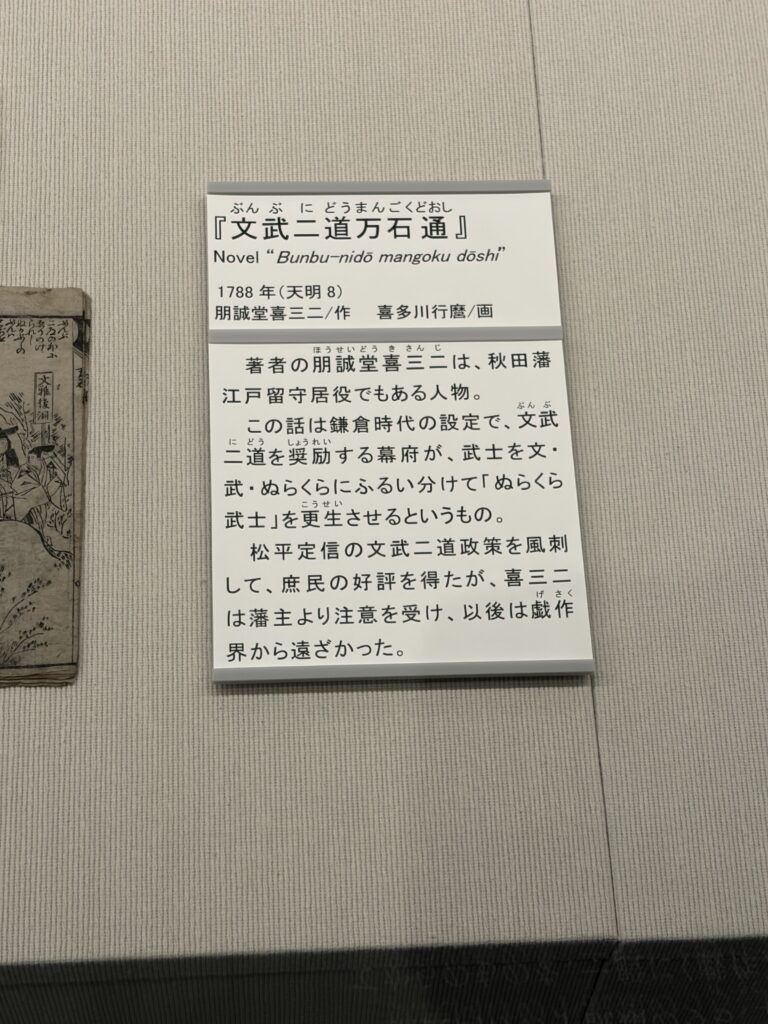 ぶんぶ に どうまんごくどおし
『文武二道万石通』
Novel “Bunbu-nidō mangoku dōshi”
1788 年(天明 8)
朋誠堂喜三二/作 喜多川行麿/画
ほうせいどう き さん じ
著者の朋誠堂喜三二は、秋田藩
江戸留守居役でもある人物。
ぶんぶ
この話は鎌倉時代の設定で、文武
に どう しょうれい
二道を奨励する幕府が、武士を文・
武・ぬらくらにふるい分けて「ぬらくら
こうせい
武士」を更生させるというもの。
松平定信の文武二道政策を風刺
して、庶民の好評を得たが、喜三二
げ さく
は藩主より注意を受け、以後は戯作
界から遠ざかった。